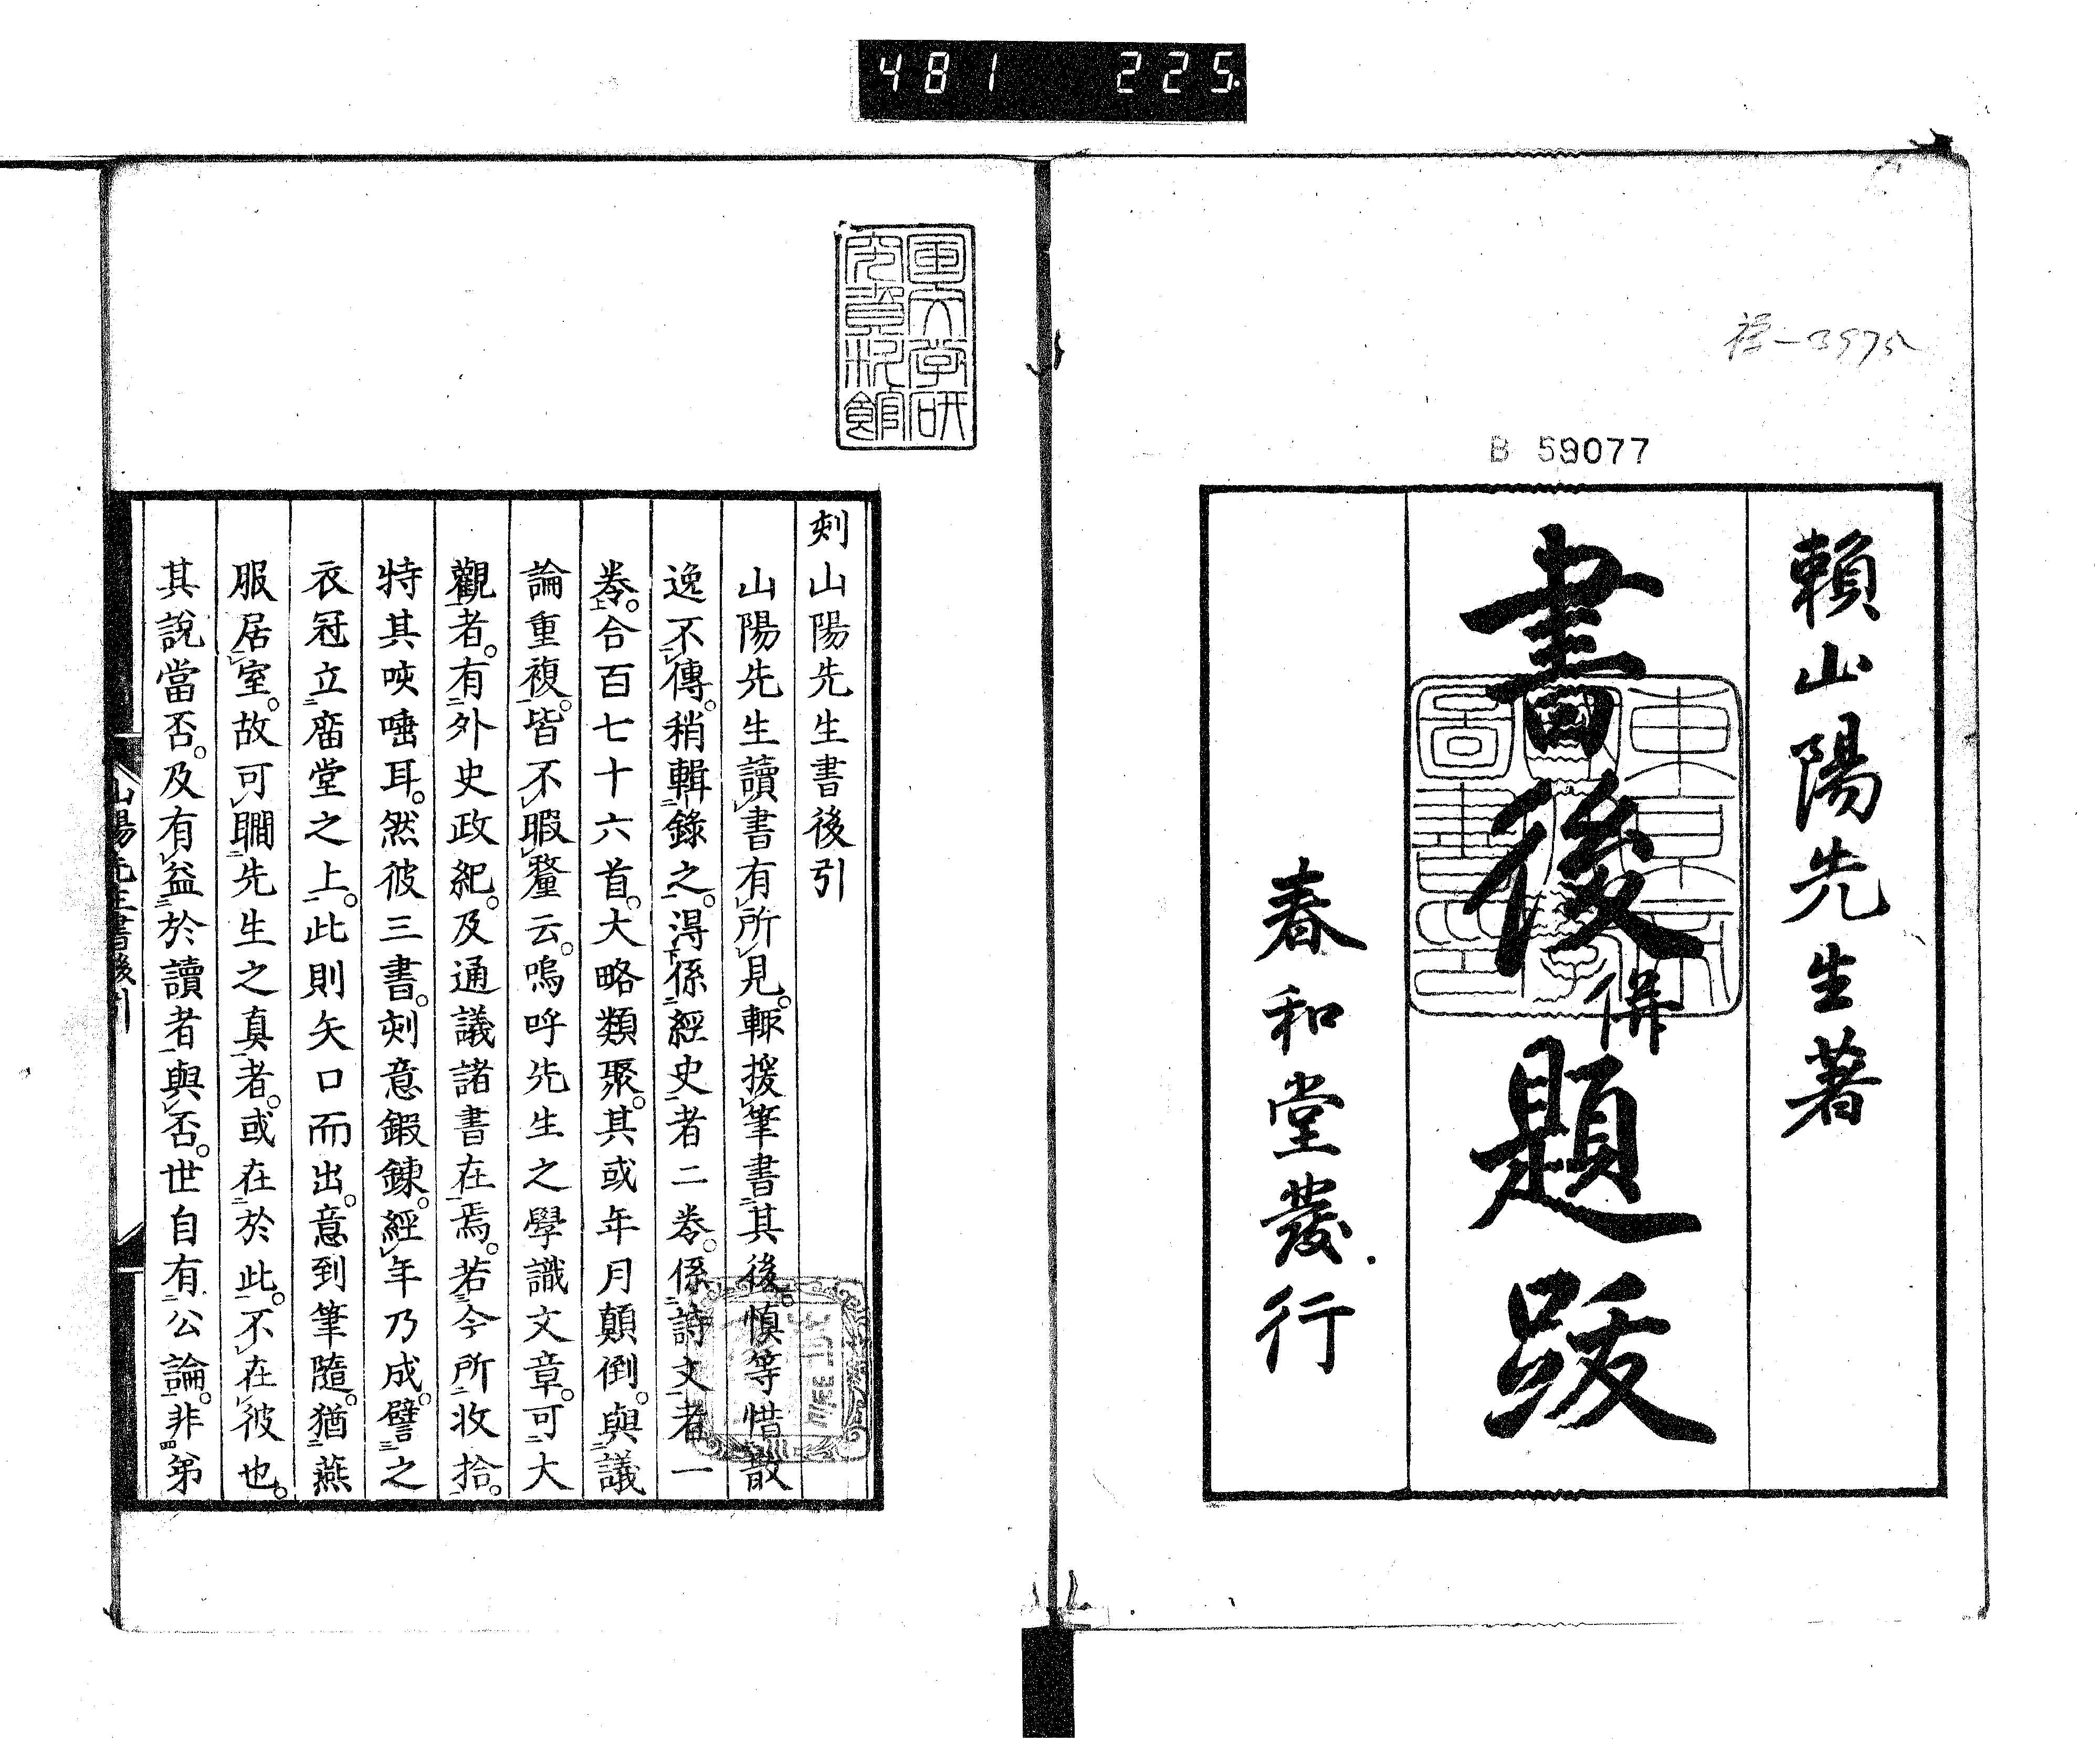 481 225
B 59077
賴山陽先生著
書後併題跋
春和堂發行
東京帝國大學圖書印
国文学研究資料館
刻山陽先生書後引
山陽先生讀書有所見。輙援筆書其後。慎等惜散
逸不傳。稍輯錄之。得係經史者二卷。係詩文者一
卷。合百七十六首。大略類聚。其或年月顛倒。與議
論重複。皆不暇釐云。嗚呼先生之學識文章。可大
觀者。有外史政紀。及通議諸書在焉。若今所收拾。
特其咳唾耳。然彼三書。刻意鍜鍊。經年乃成。譬之
衣冠立廟堂之上。此則矢口而出。意到筆隨。猶燕
服居室。故可瞷先生之真者。或在於此。不在彼也。
其說當否。及有益於讀者與否。世自有公論。非弟
山陽先生書後引